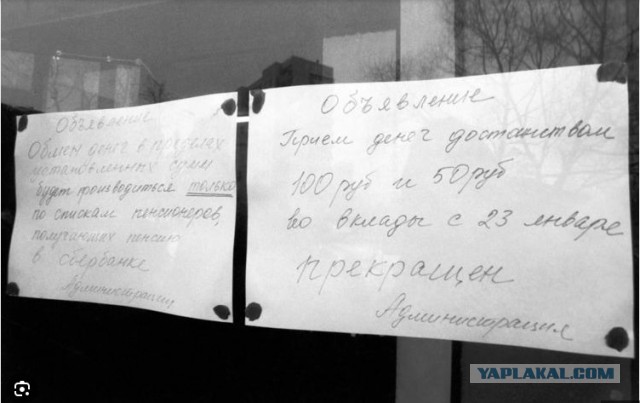 Объявление
Обмен денег в пределах
установленных сумм
будет производиться только
по спискам пенсионеров,
получающих пенсию
в сбербанке
Администрация
Объявление
Прием денег достоинством
100 руб и 50 руб
во вклады с 23 января
прекращен
Администрация
YAPLAKAL.COM